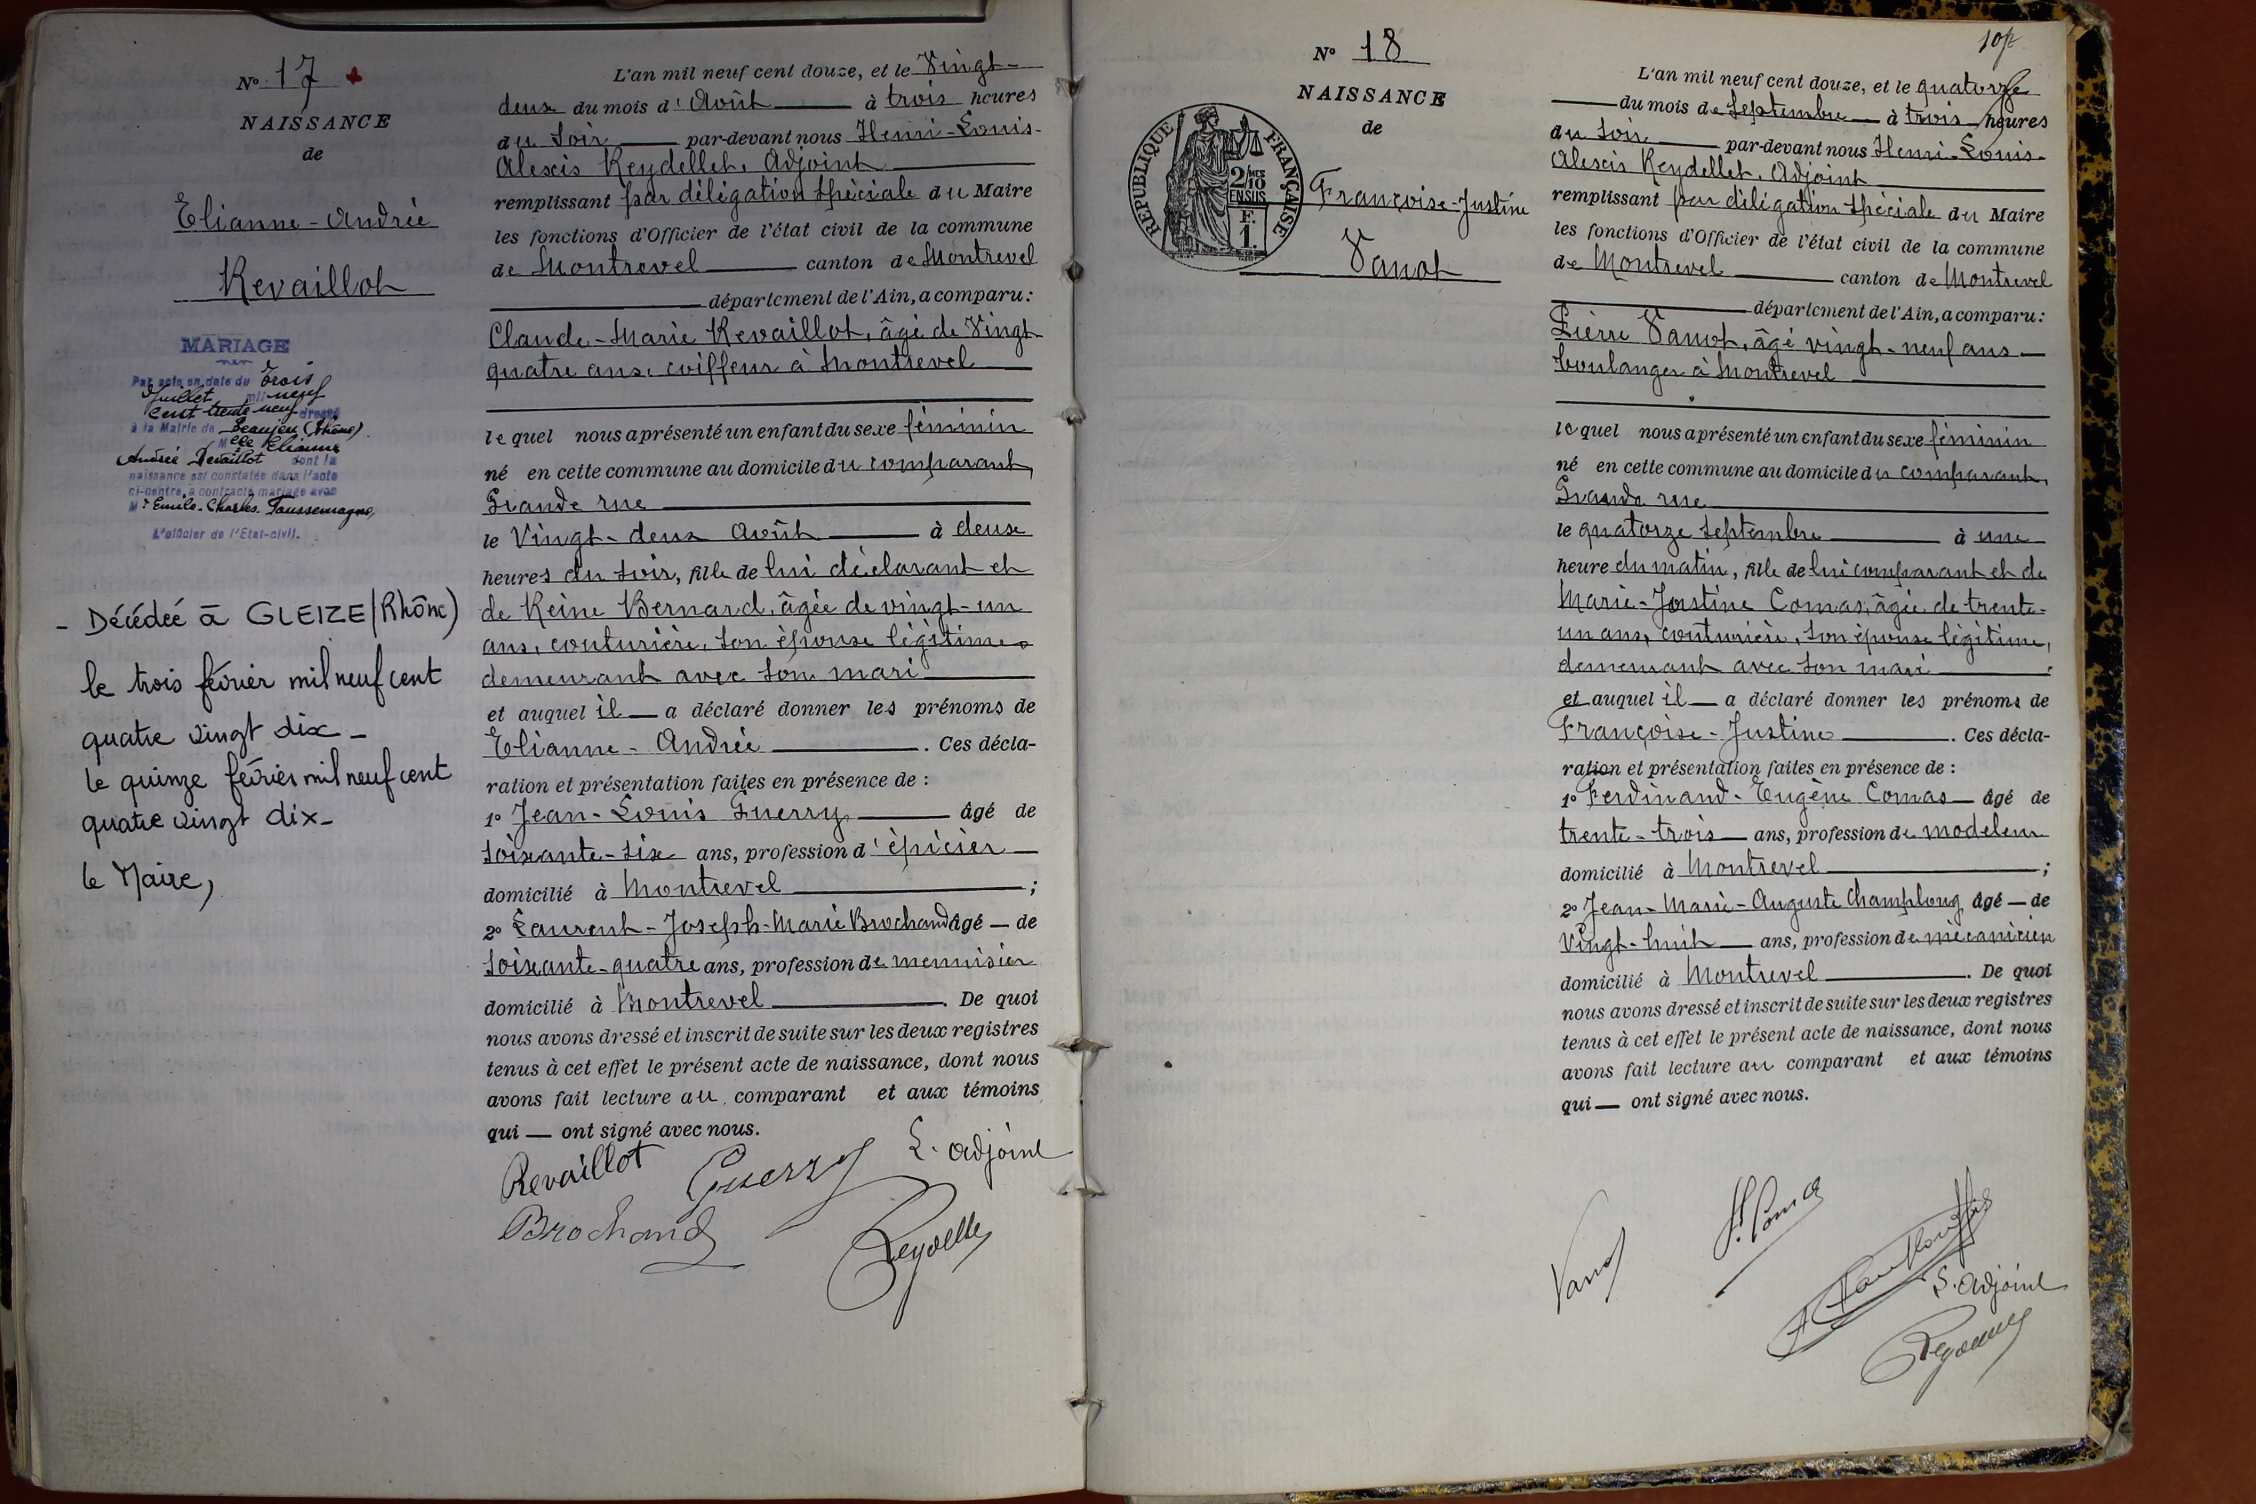 N° 17 +
NAISSANCE
de
Elianne-Andrée
Revaillot
MARIAGE
Par acte en date du Trois
Juillet mil neuf
cent trente neuf dressé
à la Mairie de Beaujeu (Rhône)
Melle Elianne
Andrée Revaillot dont la
naissance est constatée dans l'acte
ci-contre, a contracté mariage avec
Mr Emile-Charles
L'officier de l'Etat-civil.
- Décédée à GLEIZE (Rhône)
le trois février mil neuf cent
quatre vingt dix -
le quinze février mil neuf cent
quatre vingt dix -
le Maire,
L'an mil neuf cent douze, et le Vingt-
deux du mois d'Août à trois heures
du soir par-devant nous Henri-Louis-
Alexis Reydellet, Adjoint
remplissant par délégation spéciale du Maire
les fonctions d'Officier de l'état civil de la commune
de Montrevel canton de Montrevel
département de l'Ain, a comparu :
Claude-Marie Revaillot, âgé de Vingt-
quatre ans, coiffeur à Montrevel
lequel nous a présenté un enfant du sexe féminin
né en cette commune au domicile du comparant,
Grande rue
le Vingt-deux Août à deux
heures du soir, fille de lui déclarant et
de Reine Bernard, âgée de vingt-un
ans, couturière, son épouse légitime
demeurant avec son mari
et auquel il a déclaré donner les prénoms de
Elianne-Andrée. Ces décla-
ration et présentation faites en présence de :
1° Jean-Louis Guerry âgé de
soixante-six ans, profession d'épicier
domicilié à Montrevel ;
2° Laurent-Joseph-Marie Brochand âgé de
soixante-quatre ans, profession de menuisier
domicilié à Montrevel. De quoi
nous avons dressé et inscrit de suite sur les deux registres
tenus à cet effet le présent acte de naissance, dont nous
avons fait lecture au comparant et aux témoins
qui — ont signé avec nous.
Revaillot Guerry L. adjoint
Brochand Reydellet
10
N° 18
NAISSANCE
de
REPUBLIQUE FRANÇAISE
2/10 MES
EN SUS
F.
1.
Françoise-Justine
Vanot
L'an mil neuf cent douze, et le quatorze
du mois de Septembre à trois heures
du soir par-devant nous Henri-Louis-
Alexis Reydellet, Adjoint
remplissant par délégation spéciale du Maire
les fonctions d'Officier de l'état civil de la commune
de Montrevel canton de Montrevel
département de l'Ain, a comparu :
Pierre Vanot, âgé vingt-neuf ans
boulanger à Montrevel
lequel nous a présenté un enfant du sexe féminin
né en cette commune au domicile du comparant,
Grande rue
le quatorze Septembre à une
heure du matin, fille de lui comparant et de
Marie-Justine Comas, âgée de trente-
un ans, couturière, son épouse légitime,
demeurant avec son mari
et auquel il a déclaré donner les prénoms de
Françoise-Justine. Ces décla-
ration et présentation faites en présence de :
1° Ferdinand-Eugène Comas âgé de
trente-trois ans, profession de modeleur
domicilié à Montrevel ;
2° Jean-Marie-Auguste Champlong âgé de
Vingt-huit ans, profession de mécanicien
domicilié à Montrevel. De quoi
nous avons dressé et inscrit de suite sur les deux registres
tenus à cet effet le présent acte de naissance, dont nous
avons fait lecture au comparant et aux témoins
qui — ont signé avec nous.
Vanot
L. adjoint